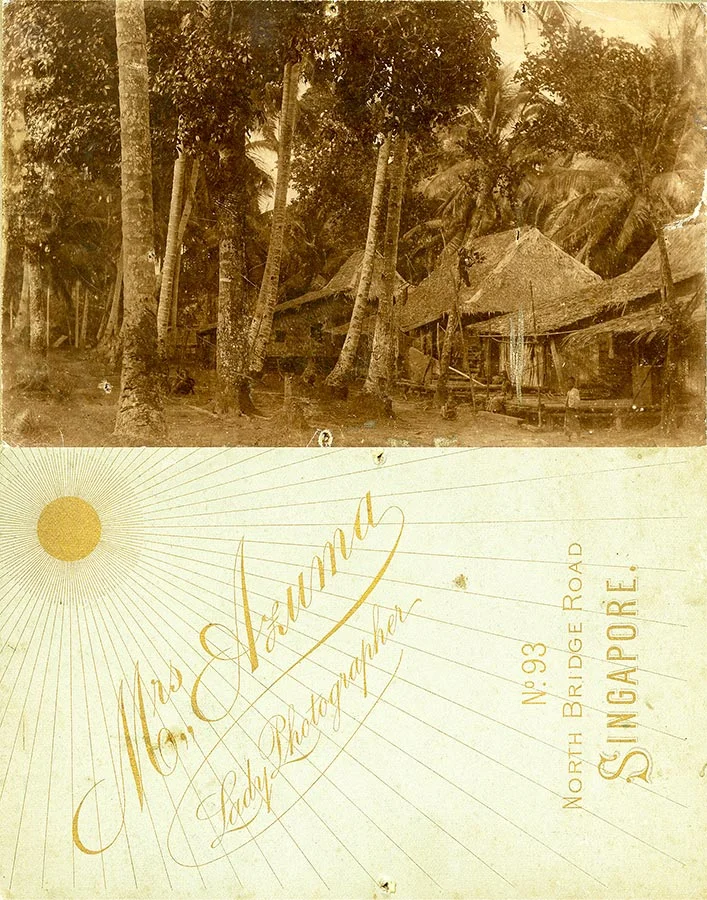 Mrs Azuma
Lady Photographer
No. 93
NORTH BRIDGE ROAD
SINGAPORE.